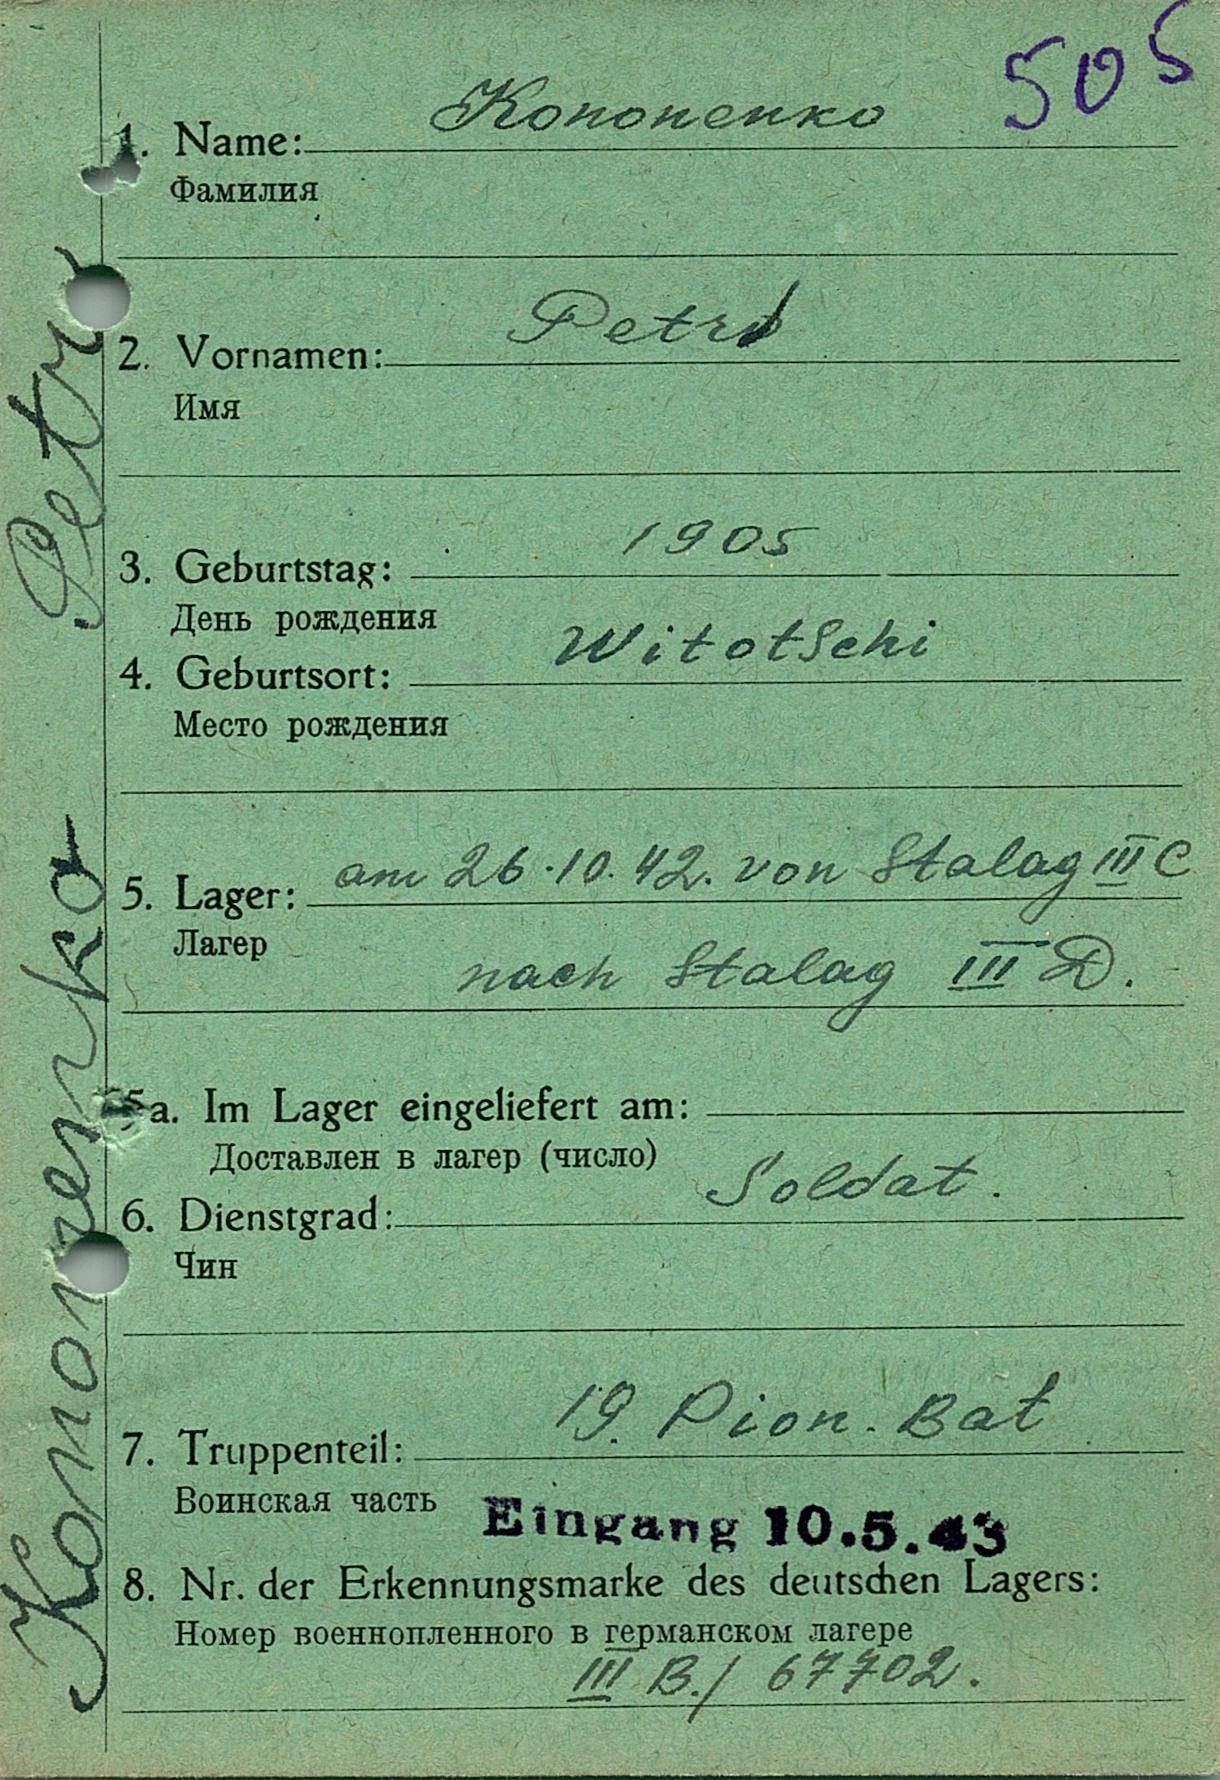 505
1. Name: Kononenko
Фамилия
2. Vornamen: Petro
Имя
3. Geburtstag: 1905
День рождения
4. Geburtsort: Witotschi
Место рождения
5. Lager: am 26.10.42. von Stalag III C
Лагер
nach Stalag III D.
5a. Im Lager eingeliefert am:
Доставлен в лагер (число)
6. Dienstgrad: Soldat.
Чин
7. Truppenteil: 19. Pion. Bat
Воинская часть
Eingang 10.5.43
8. Nr. der Erkennungsmarke des deutschen Lagers:
Номер военнопленного в германском лагере
III B./ 67702.
Kononenko Petr